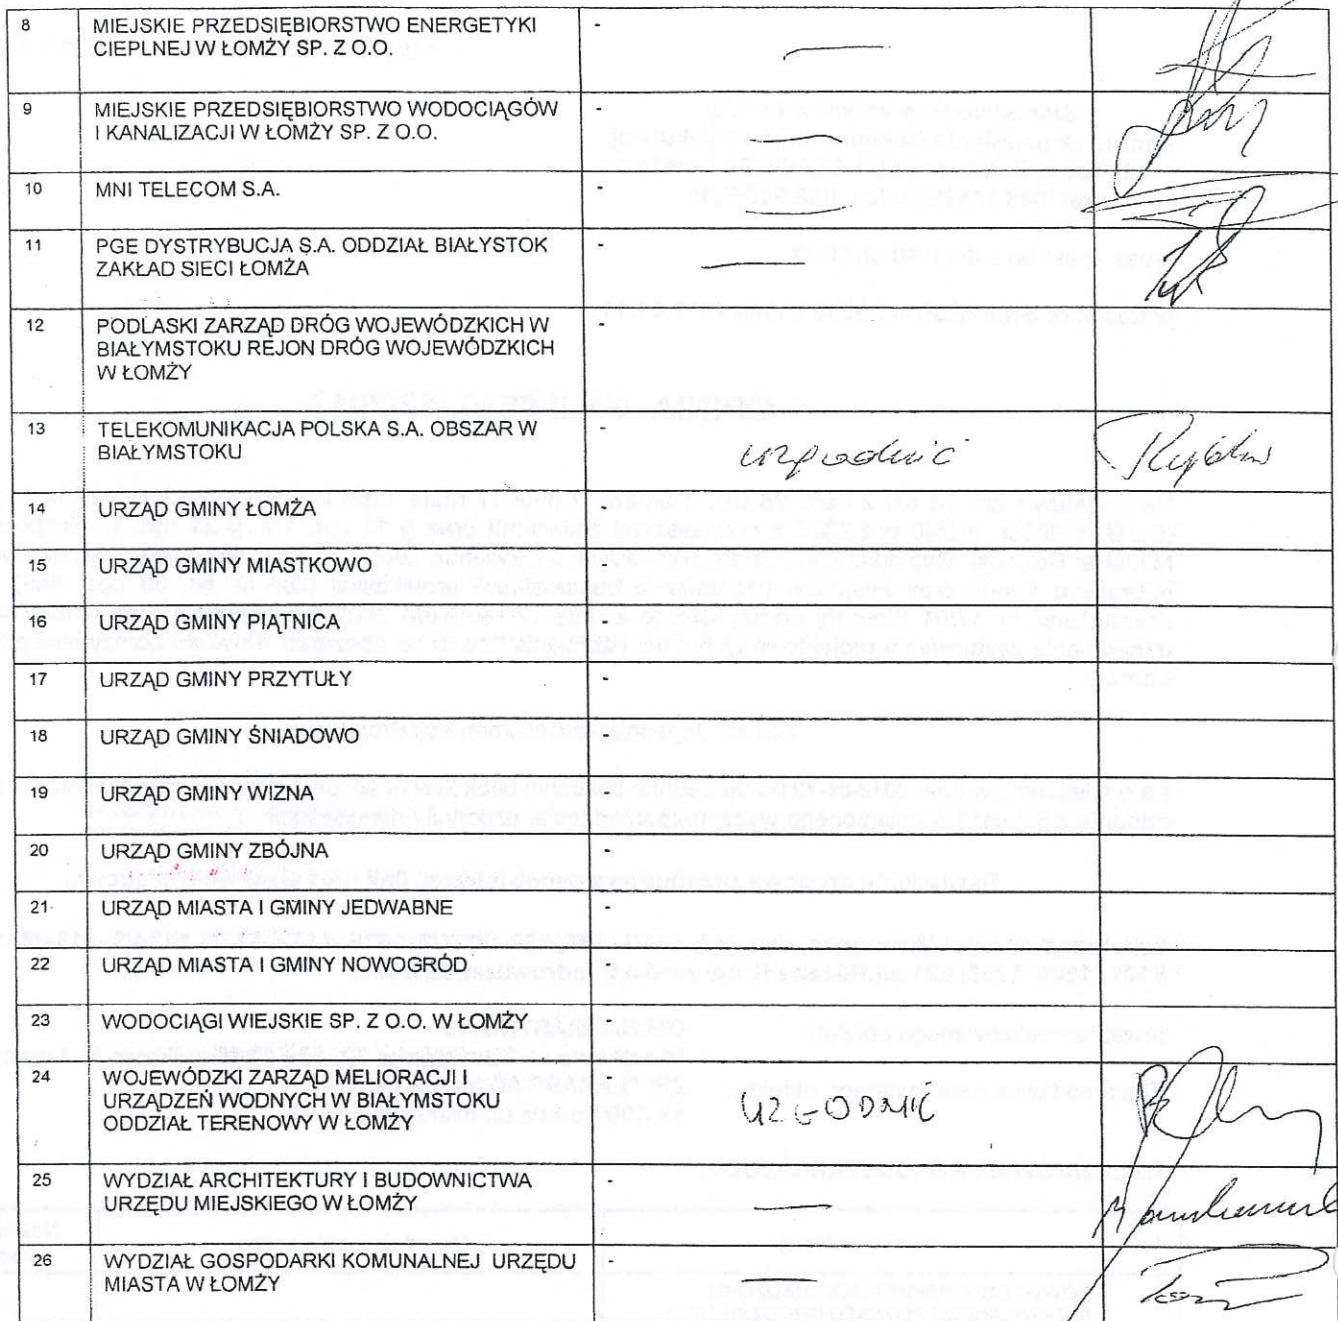 8 MIEJSKIE PRZEDSIĘBIORSTWO ENERGETYKI -
CIEPLNEJ W ŁOMŻY SP. Z O.O.
9 MIEJSKIE PRZEDSIĘBIORSTWO WODOCIĄGÓW -
I KANALIZACJI W ŁOMŻY SP. Z O.O.
10 MNI TELECOM S.A. -
11 PGE DYSTRYBUCJA S.A. ODDZIAŁ BIAŁYSTOK -
ZAKŁAD SIECI ŁOMŻA
12 PODLASKI ZARZĄD DRÓG WOJEWÓDZKICH W -
BIAŁYMSTOKU REJON DRÓG WOJEWÓDZKICH
W ŁOMŻY
13 TELEKOMUNIKACJA POLSKA S.A. OBSZAR W -
BIAŁYMSTOKU uzgodnić
14 URZĄD GMINY ŁOMŻA -
15 URZĄD GMINY MIASTKOWO -
16 URZĄD GMINY PIĄTNICA -
17 URZĄD GMINY PRZYTUŁY -
18 URZĄD GMINY ŚNIADOWO -
19 URZĄD GMINY WIZNA -
20 URZĄD GMINY ZBÓJNA -
21 URZĄD MIASTA I GMINY JEDWABNE -
22 URZĄD MIASTA I GMINY NOWOGRÓD -
23 WODOCIĄGI WIEJSKIE SP. Z O.O. W ŁOMŻY -
24 WOJEWÓDZKI ZARZĄD MELIORACJI I -
URZĄDZEŃ WODNYCH W BIAŁYMSTOKU UZGODNIĆ
ODDZIAŁ TERENOWY W ŁOMŻY
25 WYDZIAŁ ARCHITEKTURY I BUDOWNICTWA -
URZĘDU MIEJSKIEGO W ŁOMŻY
26 WYDZIAŁ GOSPODARKI KOMUNALNEJ URZĘDU -
MIASTA W ŁOMŻY